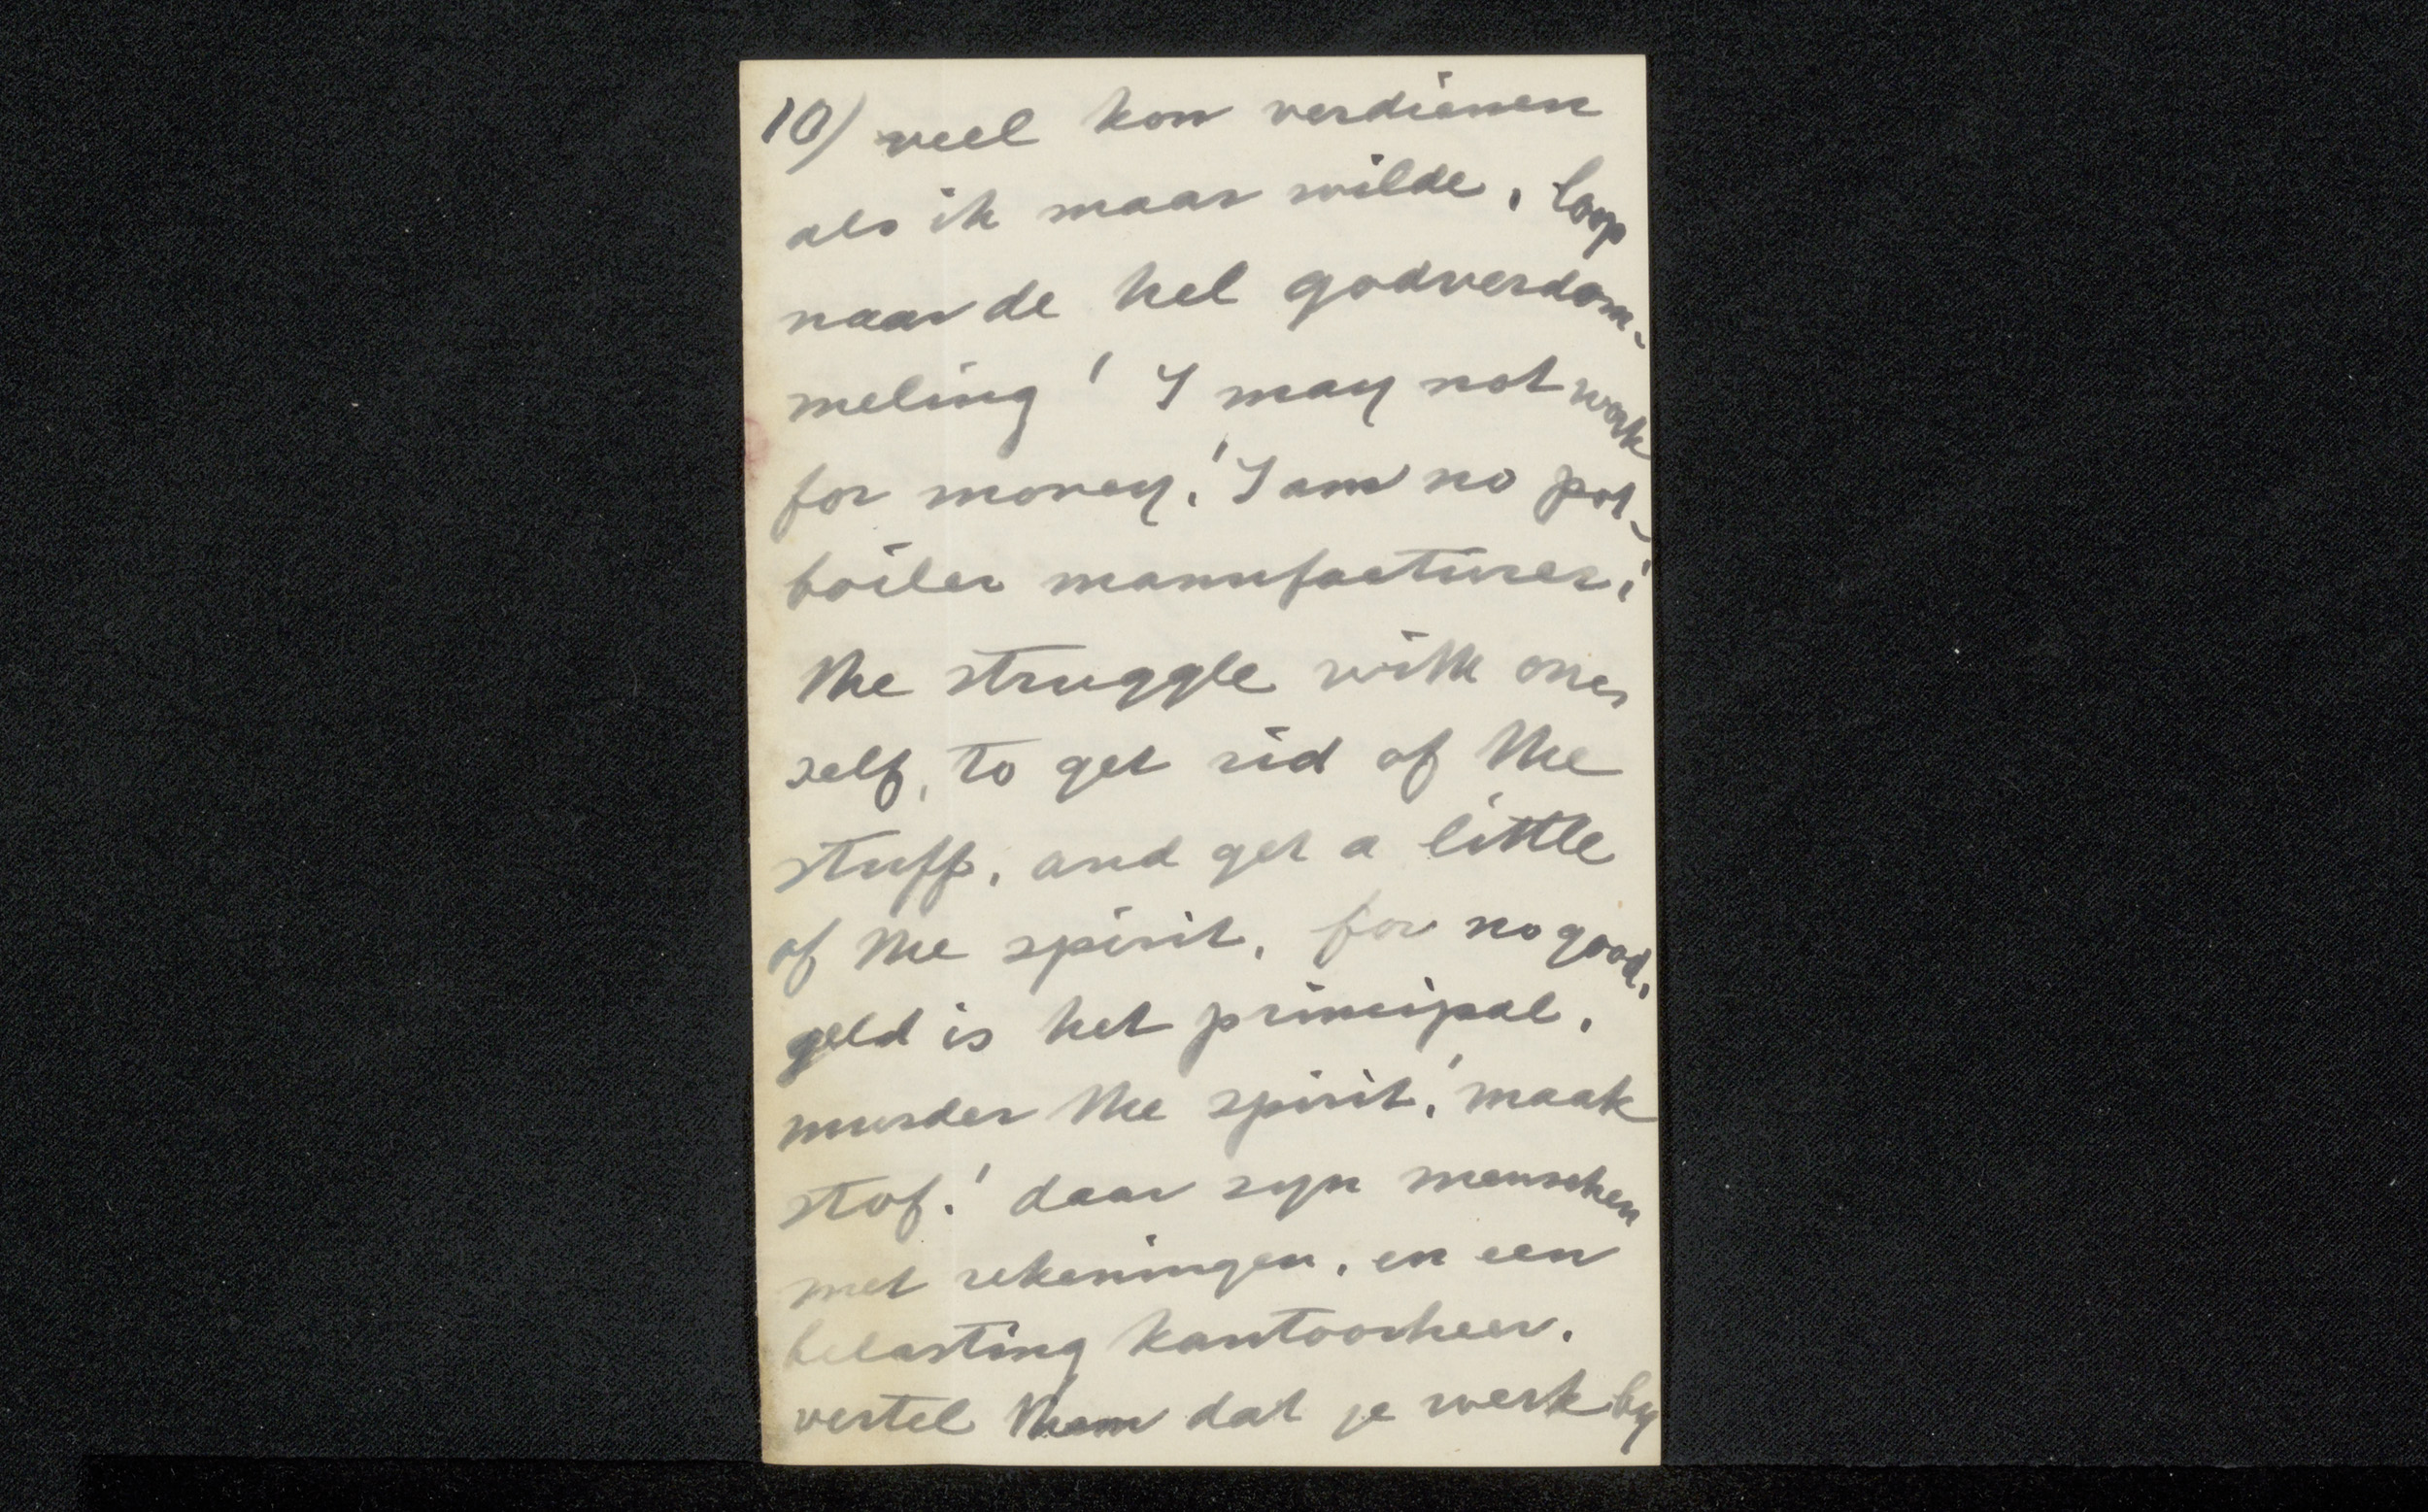 10) veel kon verdienen
als ik maar wilde, loop
naar de hel godverdom-
meling! I may not work
for money! I am no pot-
boiler manufacturer;
the struggle with one,
self, to get rid of the
stuff, and get a little
of the spirit, for no good,
geld is het principal.
murder the spirit! maak
stof! daar zyn menschen
met rekeningen, en een
belasting kantoorheer.
vertel them dat je werk by